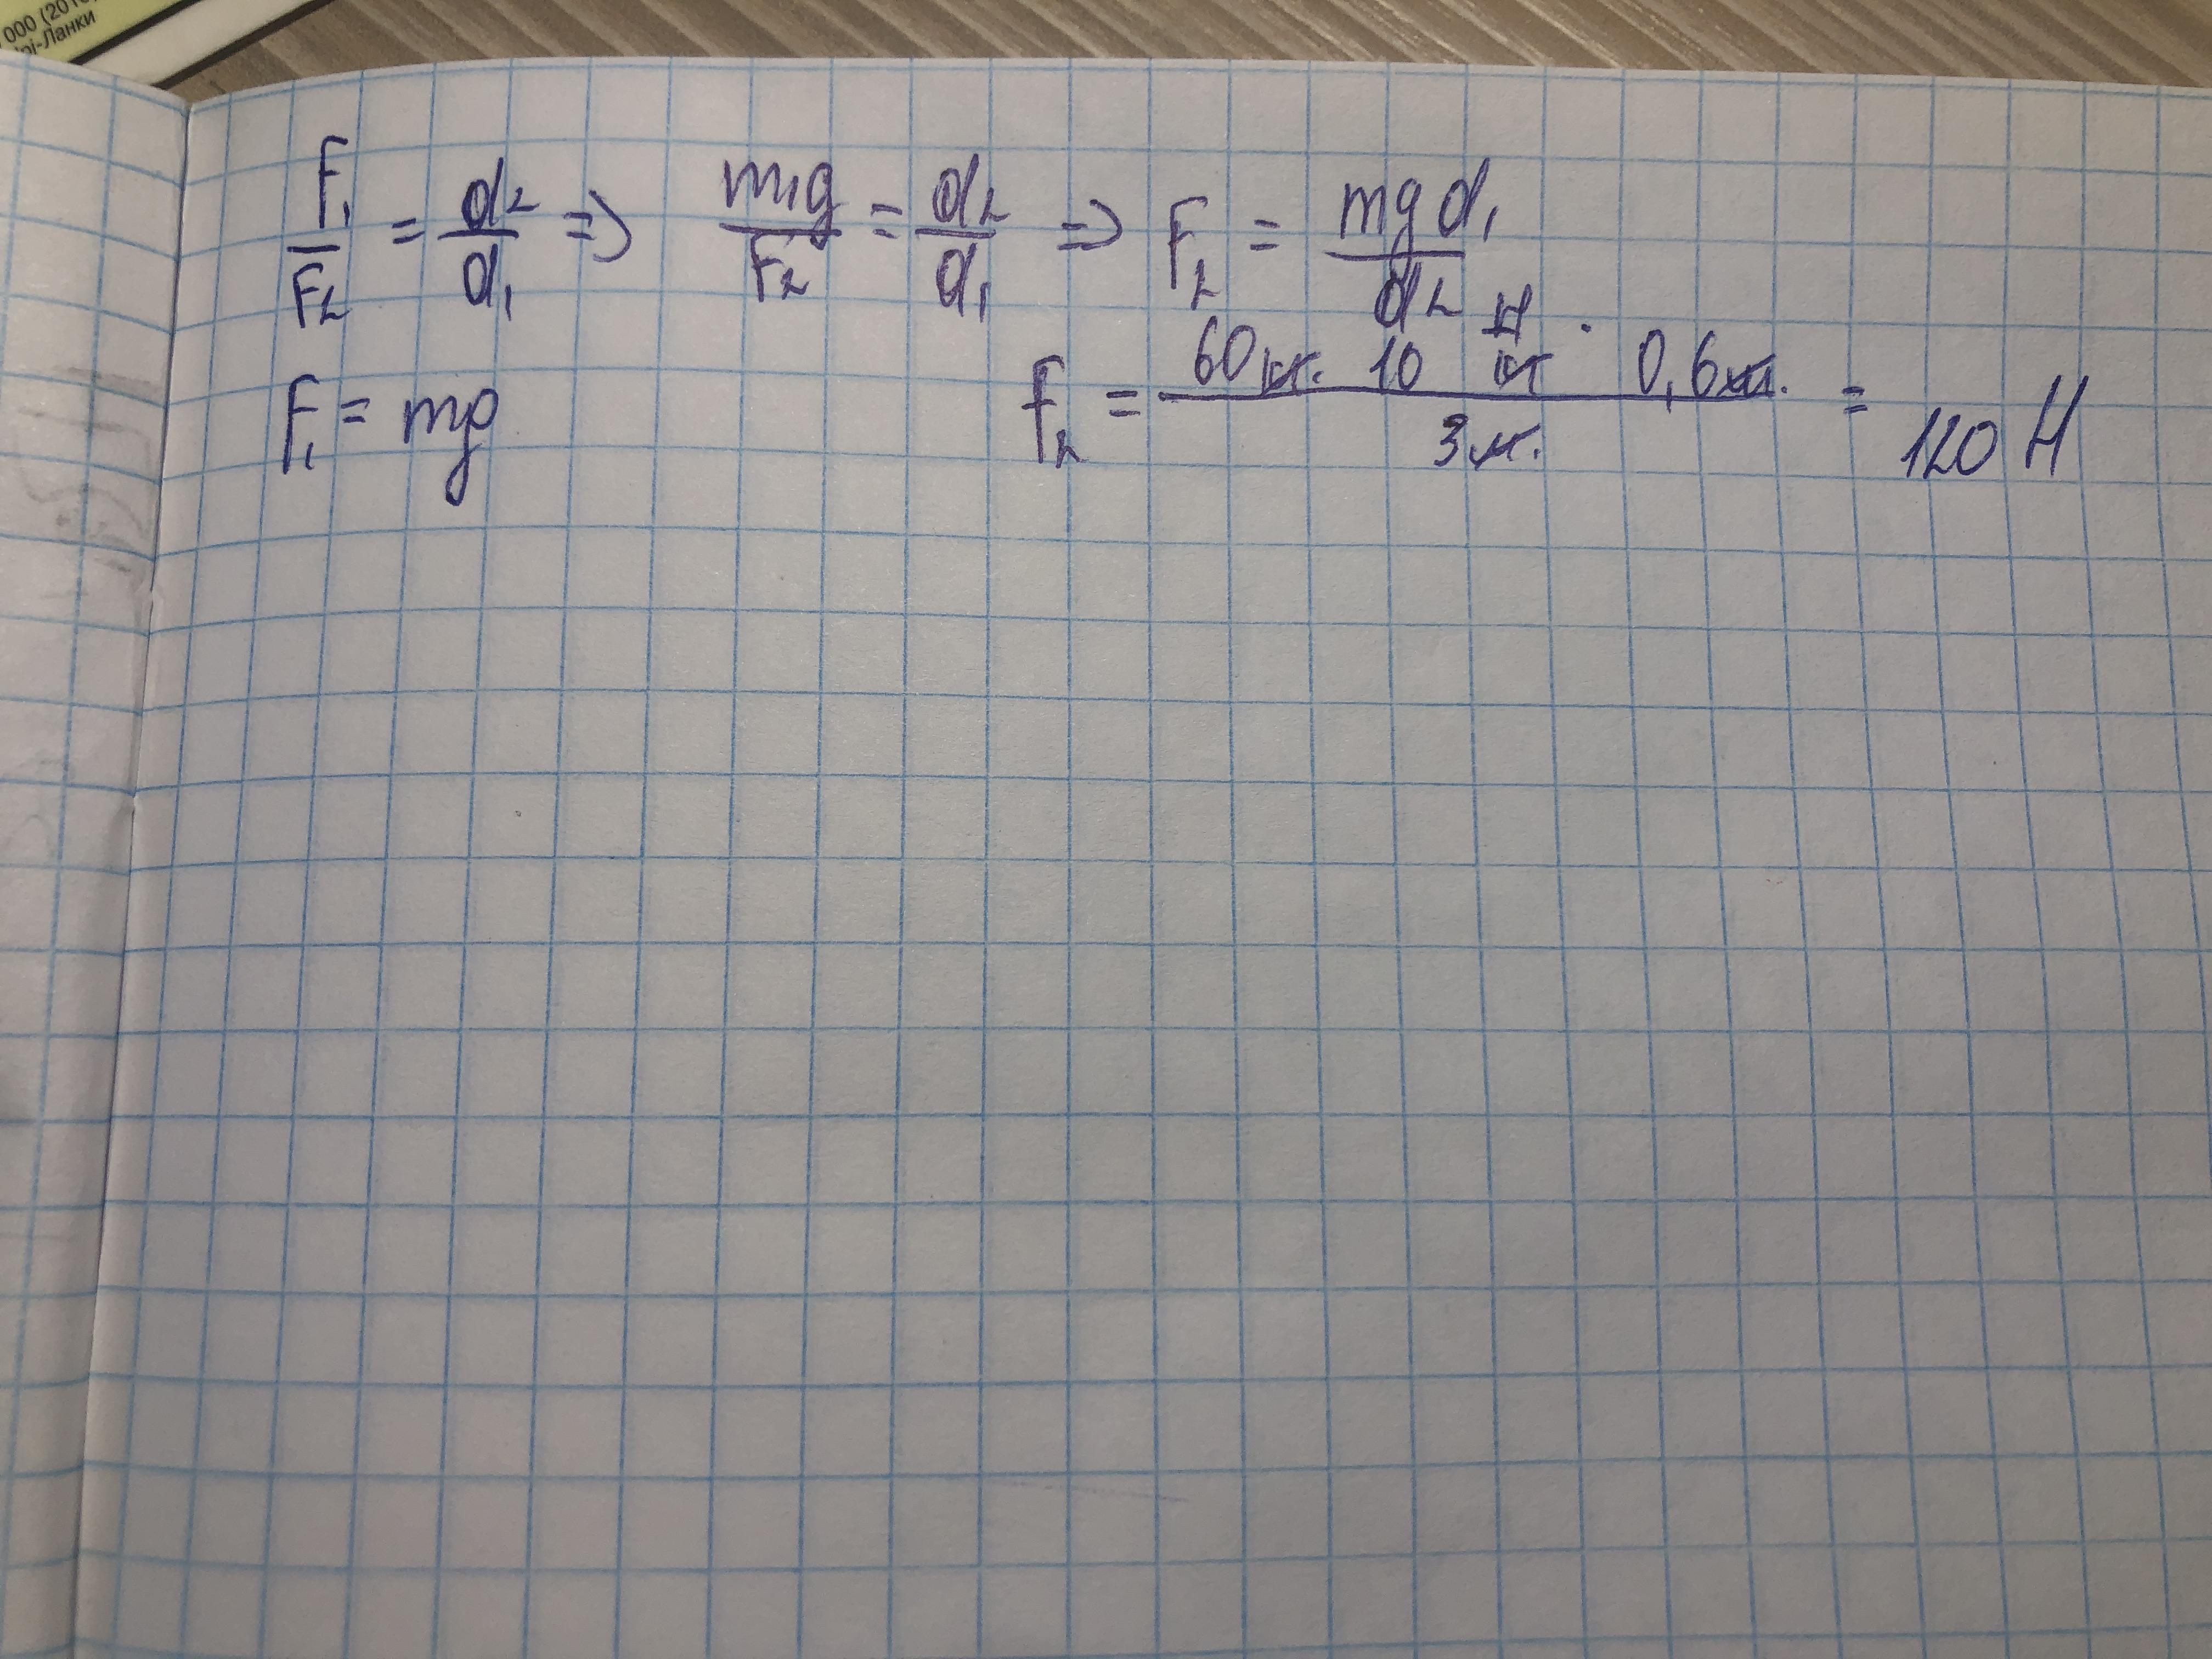 000 (201
рі-Ланки
F₁/F₂ = d₂/d₁ => m₁g/F₂ = d₂/d₁ => F₂ = mgd₁/d₂
F₁ = mg
F₂ = 60кг. 10 Н/кг · 0,6м. / 3м. = 120 Н